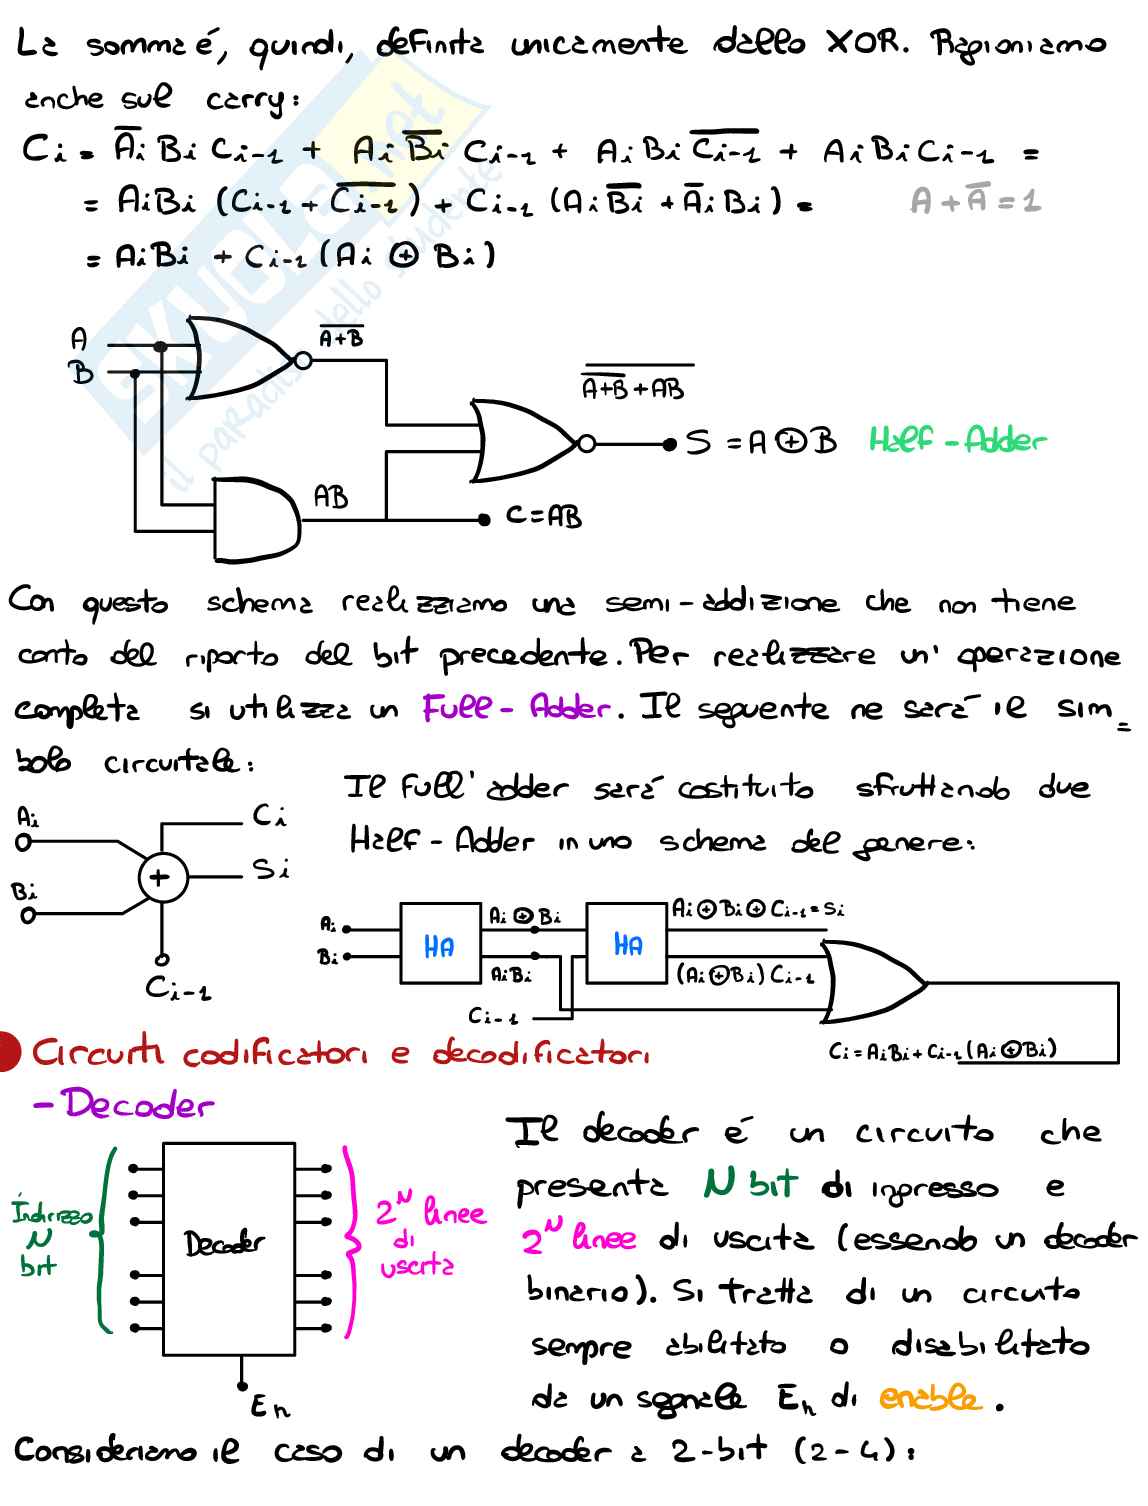 La somma é, quindi, definita unicamente dallo XOR. Ragioniamo
anche sul carry:
Ci = A̅i Bi Ci-1 + Ai B̅i Ci-1 + Ai Bi C̅i-1 + Ai Bi Ci-1 =
= AiBi (Ci-1 + C̅i-1) + Ci-1 (Ai B̅i + A̅i Bi) =
A + A̅ = 1
= AiBi + Ci-1 (Ai ⊕ Bi)
SKUOLA.net
il paradiso dello studente
A
B
\overline{A+B}
\overline{\overline{A+B} + AB}
S = A ⊕ B
Half-Adder
AB
C=AB
Con questo schema realizziamo una semi-addizione che non tiene
conto del riporto del bit precedente. Per realizzare un' operazione
completa si utilizza un Full-Adder. Il seguente ne sará il sim_
bolo circuitale:
Ai
Bi
+
Ci
Si
Ci-1
Il Full'adder sará costituito sfruttando due
Half-Adder in uno schema del genere:
Ai
Bi
HA
Ai ⊕ Bi
AiBi
Ci-1
HA
Ai ⊕ Bi ⊕ Ci-1 = Si
(Ai ⊕ Bi) Ci-1
Ci = AiBi + Ci-1 (Ai ⊕ Bi)
Circuiti codificatori e decodificatori
- Decoder
Indirizzo
N
bit
Decoder
2^N linee
di
uscita
En
Il decoder é un circuito che
presenta N bit di ingresso e
2^N linee di uscita (essendo un decoder
binario). Si tratta di un circuito
sempre abilitato o disabilitato
da un segnale En di enable.
Consideriamo il caso di un decoder a 2-bit (2-4):